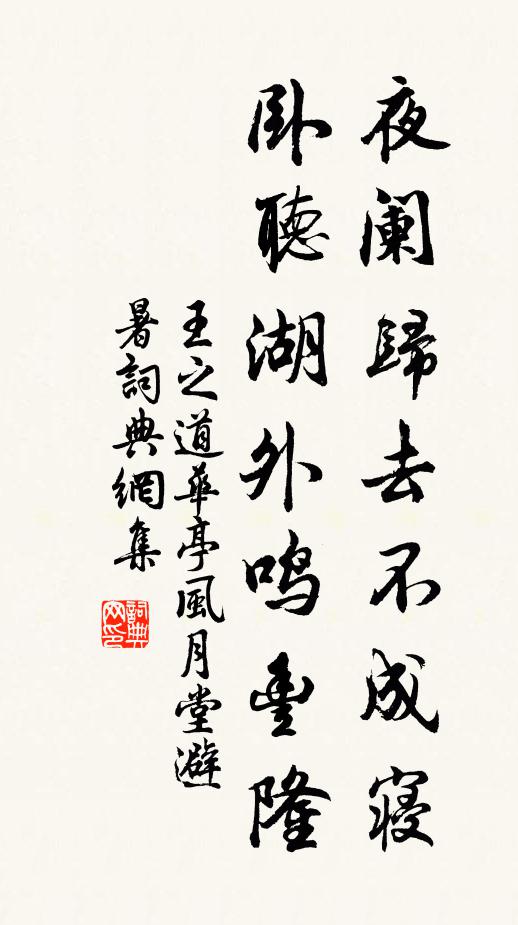 夜阑歸去不成寝
卧聽湖外鸣豊隆
王之道華亭風月堂避
暑詞典網集
詞典网印